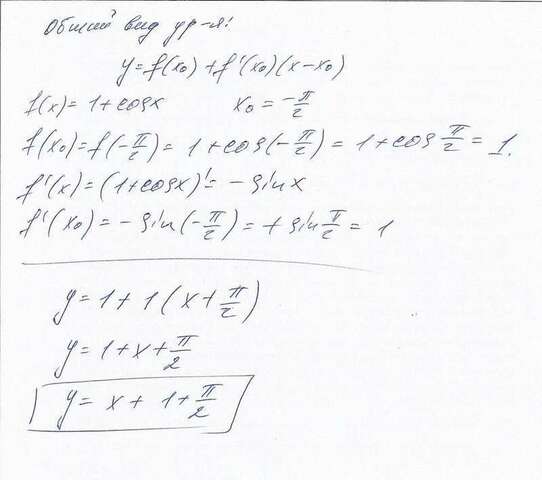 Общий вид ур-я:
y = f(x₀) + f'(x₀)(x-x₀)
f(x) = 1 + cosx x₀ = -π/2
f(x₀) = f(-π/2) = 1 + cos(-π/2) = 1 + cos π/2 = 1.
f'(x) = (1+cosx)' = - sinx
f'(x₀) = - sin(-π/2) = + sin π/2 = 1
y = 1 + 1(x + π/2)
y = 1 + x + π/2
y = x + 1 + π/2